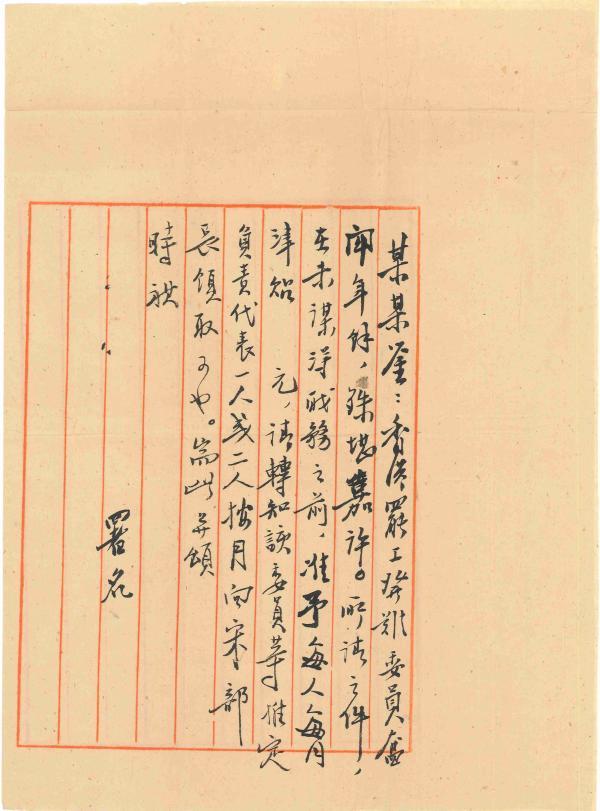 某某鉴：香港罢工骑难委員奮
闘年餘，殊堪嘉許。所請之件，
在未谋得职務之前，准予每人每月
津贴　元，請轉知該委員等推定
負责代表一人或二人按月向宋部
長領取可也。耑此并頌
時祺
署名